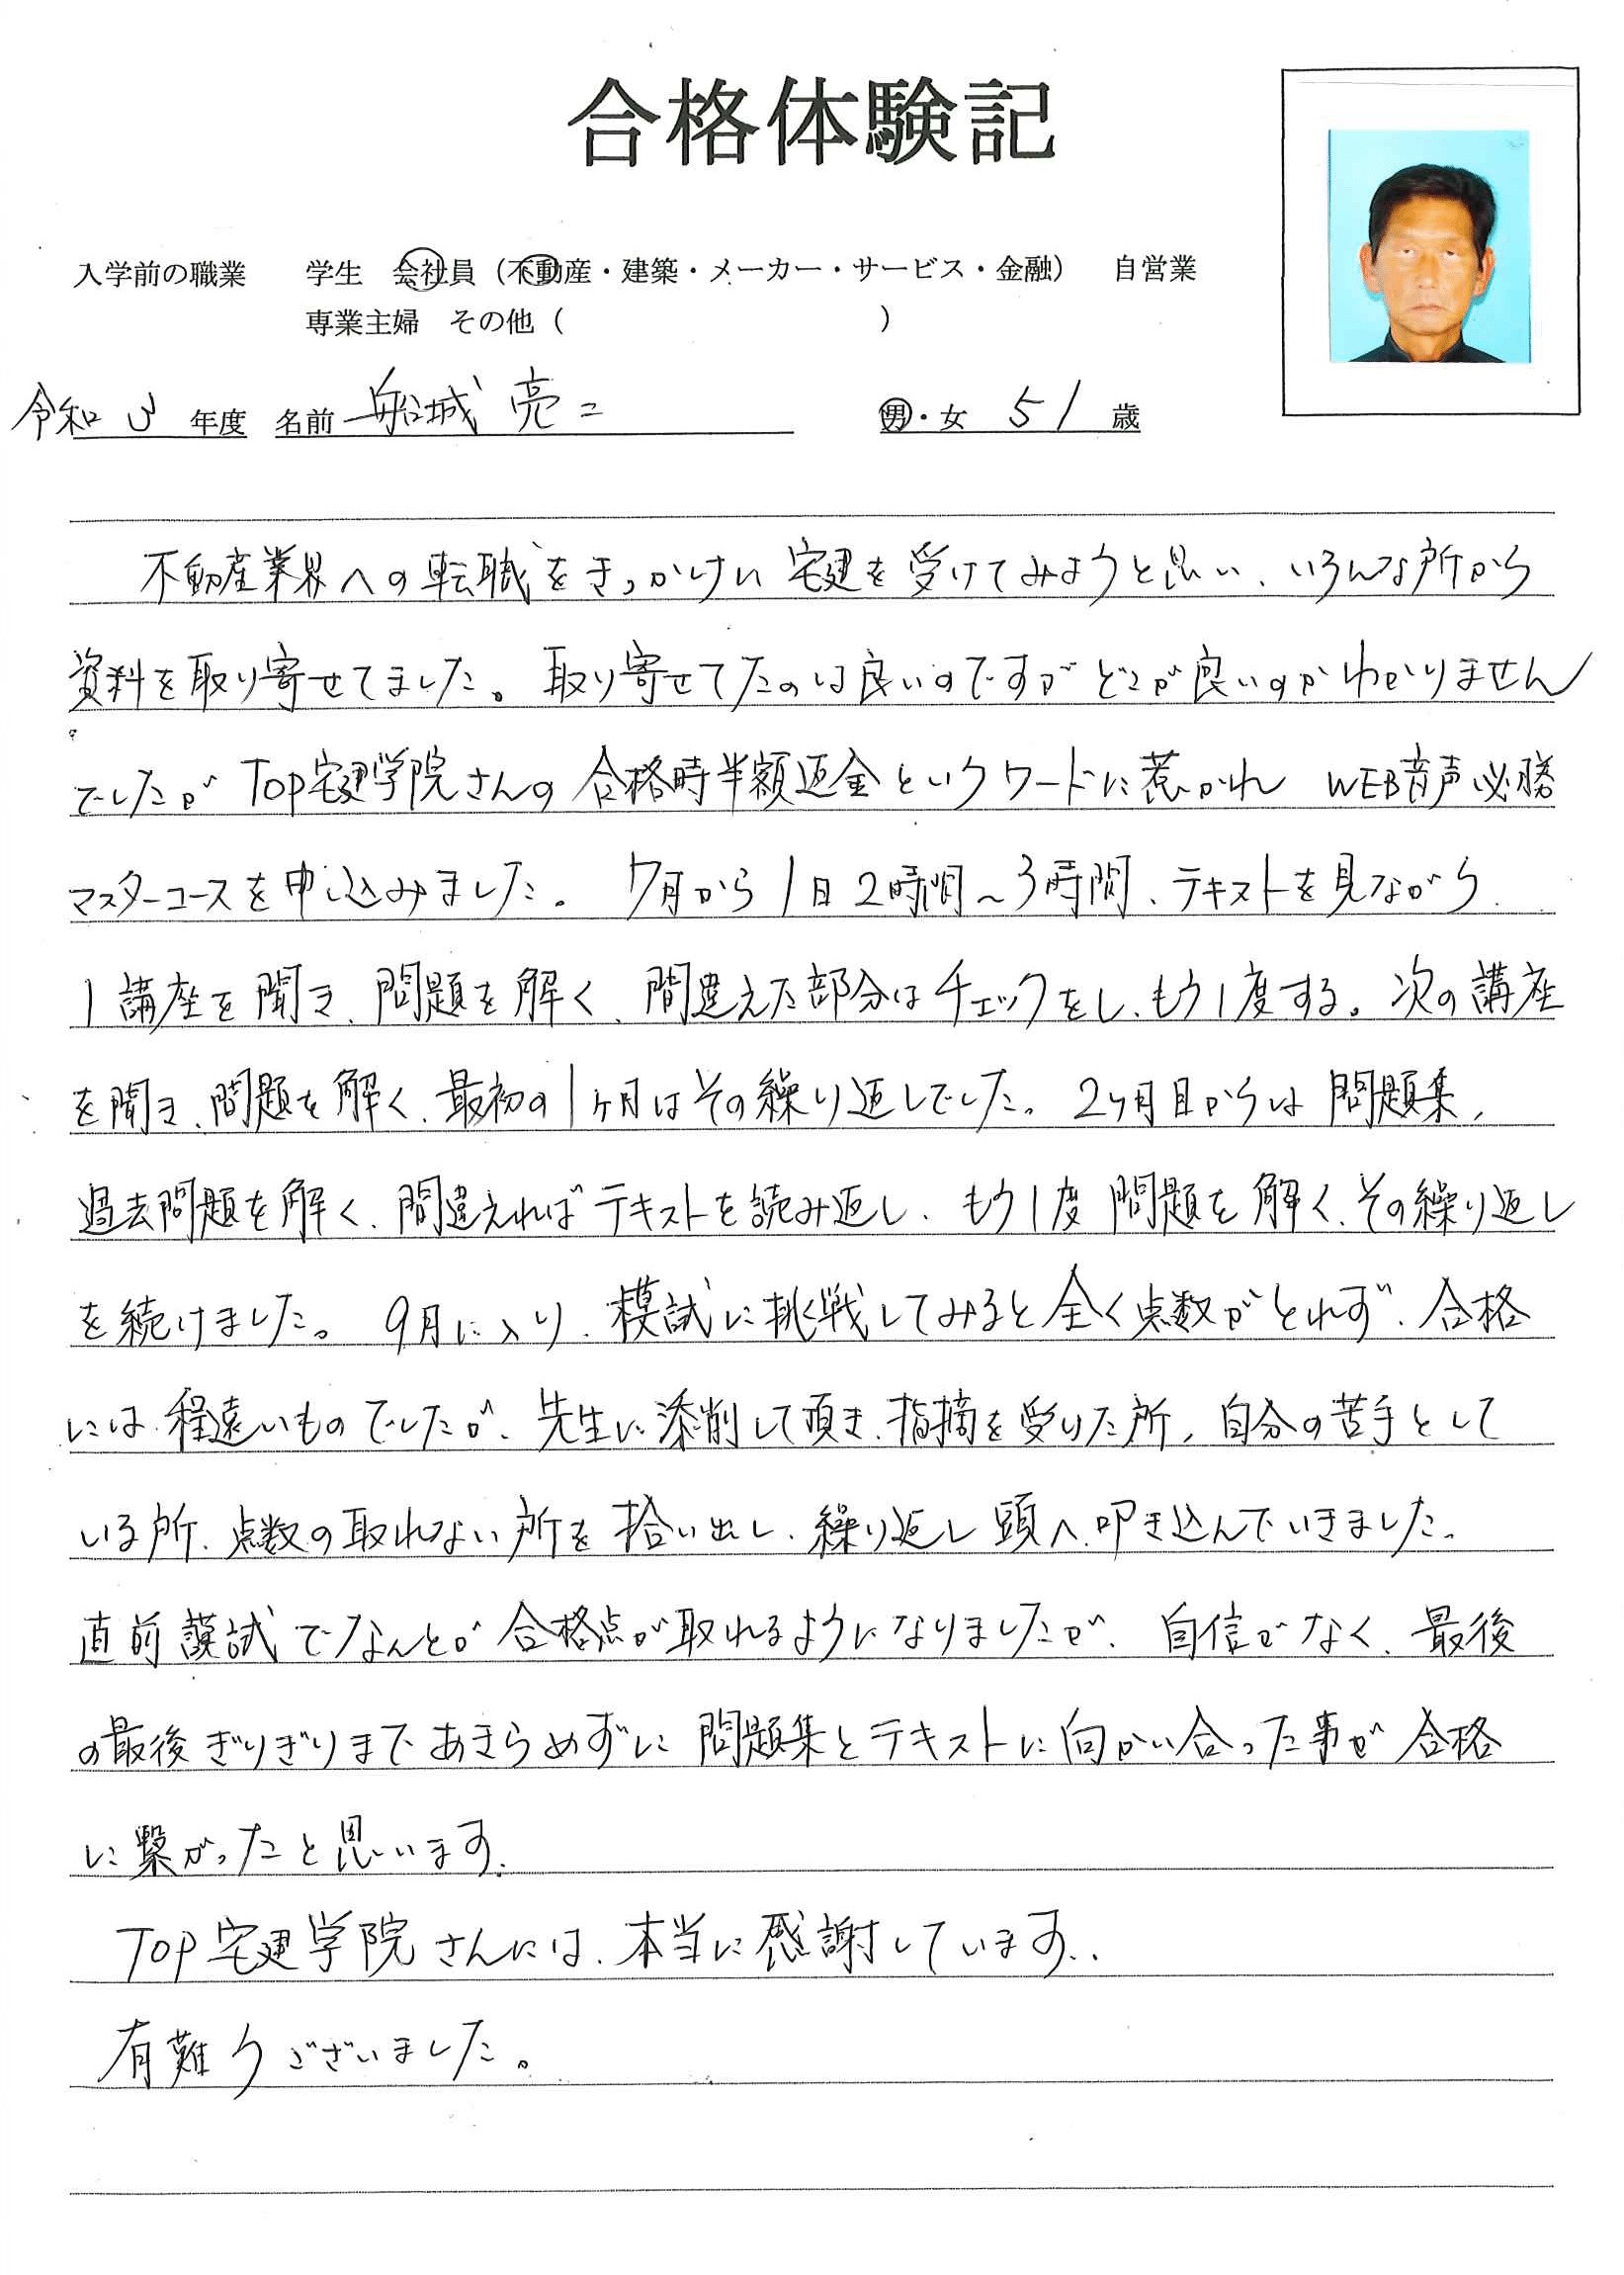 合格体験記
入学前の職業　学生　会社員（不動産・建築・メーカー・サービス・金融）　自営業
専業主婦　その他（　　　　　）
令和3年度　名前　船城 亮二　男・女　51歳
不動産業界への転職をきっかけに宅建を受けてみようと思い、いろんな所から
資料を取り寄せてました。取り寄せてたのは良いのですがどこが良いのかわかりません
でしたが Top宅建学院さんの合格時半額返金というワードに惹かれ WEB音声必勝
マスターコースを申し込みました。7月から1日2時間～3時間、テキストを見ながら、
1講座を聞き、問題を解く、間違えた部分はチェックをし、もう1度する。次の講座
を聞き、問題を解く、最初の1ヶ月はその繰り返しでした。2ヶ月目からは問題集、
過去問題を解く、間違えればテキストを読み返し、もう1度問題を解く、その繰り返し
を続けました。9月に入り、模試に挑戦してみると全く点数がとれず、合格
には、程遠いものでしたが、先生に添削して頂き、指摘を受けた所、自分の苦手として
いる所、点数の取れない所を拾い出し、繰り返し頭へ叩き込んでいきました。
直前模試でなんとか合格点が取れるようになりましたが、自信がなく、最後
の最後ぎりぎりまであきらめずに問題集とテキストに向かい合った事が合格
に繋がったと思います。
Top宅建学院さんには、本当に感謝しています。
有難うございました。